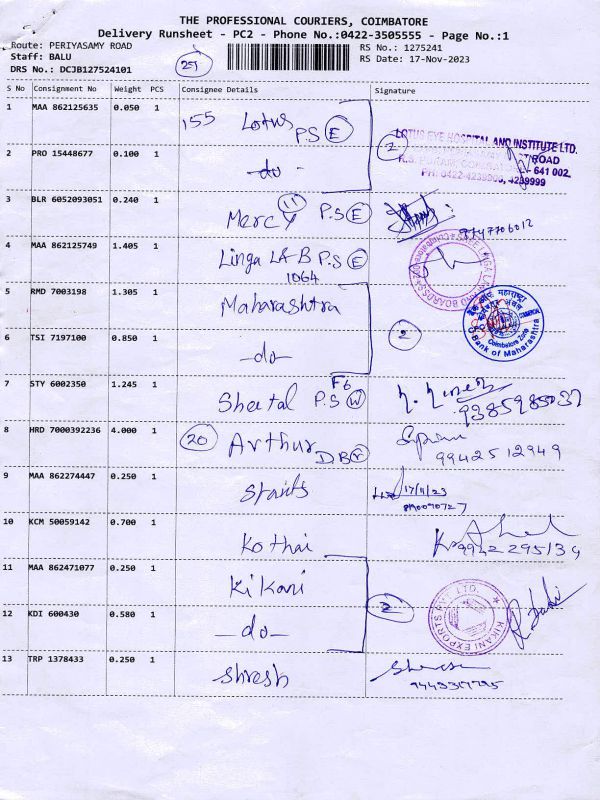 THE PROFESSIONAL COURIERS, COIMBATORE
Delivery Runsheet - PC2 - Phone No.:0422-3505555 - Page No.:1
Route: PERIYASAMY ROAD RS No.: 1275241
Staff: BALU 29 RS Date: 17-Nov-2023
DRS No.: DCJB127524101
S No Consignment No Weight PCS Consignee Details Signature
1 MAA 862125635 0.050 1 155 Lotus P.S E
LOTUS EYE HOSPITAL AND INSTITUTE LTD.
2 PRO 15448677 0.100 1 -do- 2
ROAD
641 002.
PH: 0422-4239900, 4239999
3 BLR 6052093051 0.240 1 Mercy 11 P.S E
4 MAA 862125749 1.405 1 Linga LA-B P.S E
1064
5 RMD 7003198 1.305 1 Maharashtra
बैंक ऑफ महाराष्ट्र
Coimbatore Zone
Bank of Maharashtra
6 TSI 7197100 0.850 1 -do- 2
7 STY 6002350 1.245 1 Sheetal P.S W F6
8 HRD 7000392236 4.000 1 20 Arthur D.B
9942512949
9 MAA 862274447 0.250 1 17/11/23
10 KCM 50059142 0.700 1 Kothai
9942295139
11 MAA 862471077 0.250 1 Kikani
12 KDI 600430 0.580 1 -do- 2
KIKANI EXPORTS PVT. LTD.
13 TRP 1378433 0.250 1 Shresh